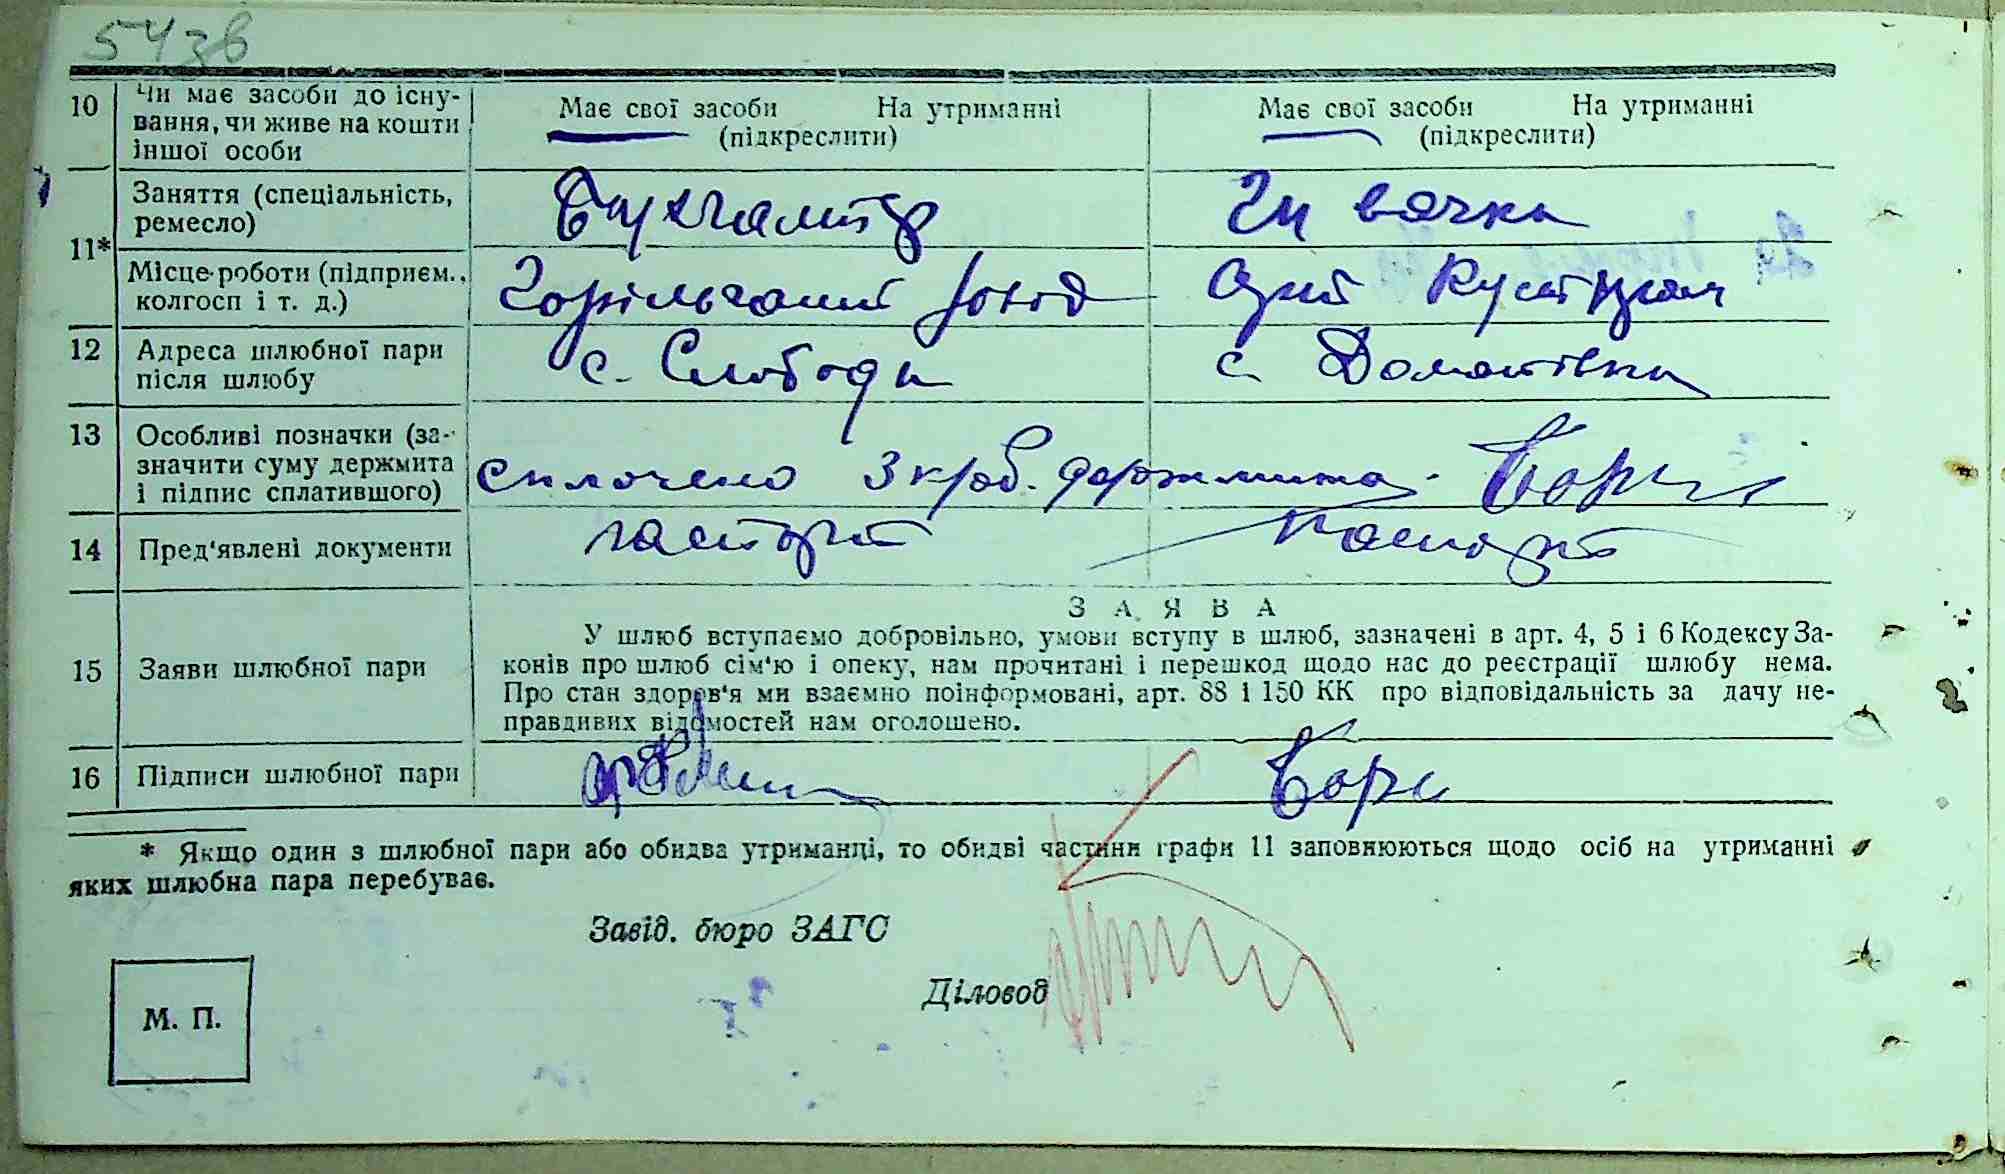 54зв
10 Чи має засоби до існу-
вання, чи живе на кошти
іншої особи
Має свої засоби На утриманні
(підкреслити)
Має свої засоби На утриманні
(підкреслити)
11*
Заняття (спеціальність,
ремесло)
Бухгалтер
Швачка
Місце роботи (підприєм.,
колгосп і т. д.)
12 Адреса шлюбної пари
після шлюбу
с. Слобода
с. Домотівка
13 Особливі позначки (за-
значити суму держмита
і підпис сплатившого)
Сплочено 3 крб. держмита.
14 Пред'явлені документи
паспорт
паспорт
15 Заяви шлюбної пари
ЗАЯВА
У шлюб вступаємо добровільно, умови вступу в шлюб, зазначені в арт. 4, 5 і 6 Кодексу За-
конів про шлюб сім'ю і опеку, нам прочитані і перешкод щодо нас до реєстрації шлюбу нема.
Про стан здоров'я ми взаємно поінформовані, арт. 88 і 150 КК про відповідальність за дачу не-
правдивих відомостей нам оголошено.
16 Підписи шлюбної пари
* Якщо один з шлюбної пари або обидва утриманці, то обидві частини графи 11 заповнюються щодо осіб на утриманні
яких шлюбна пара перебуває.
Завід. бюро ЗАГС
Діловод
М. П.